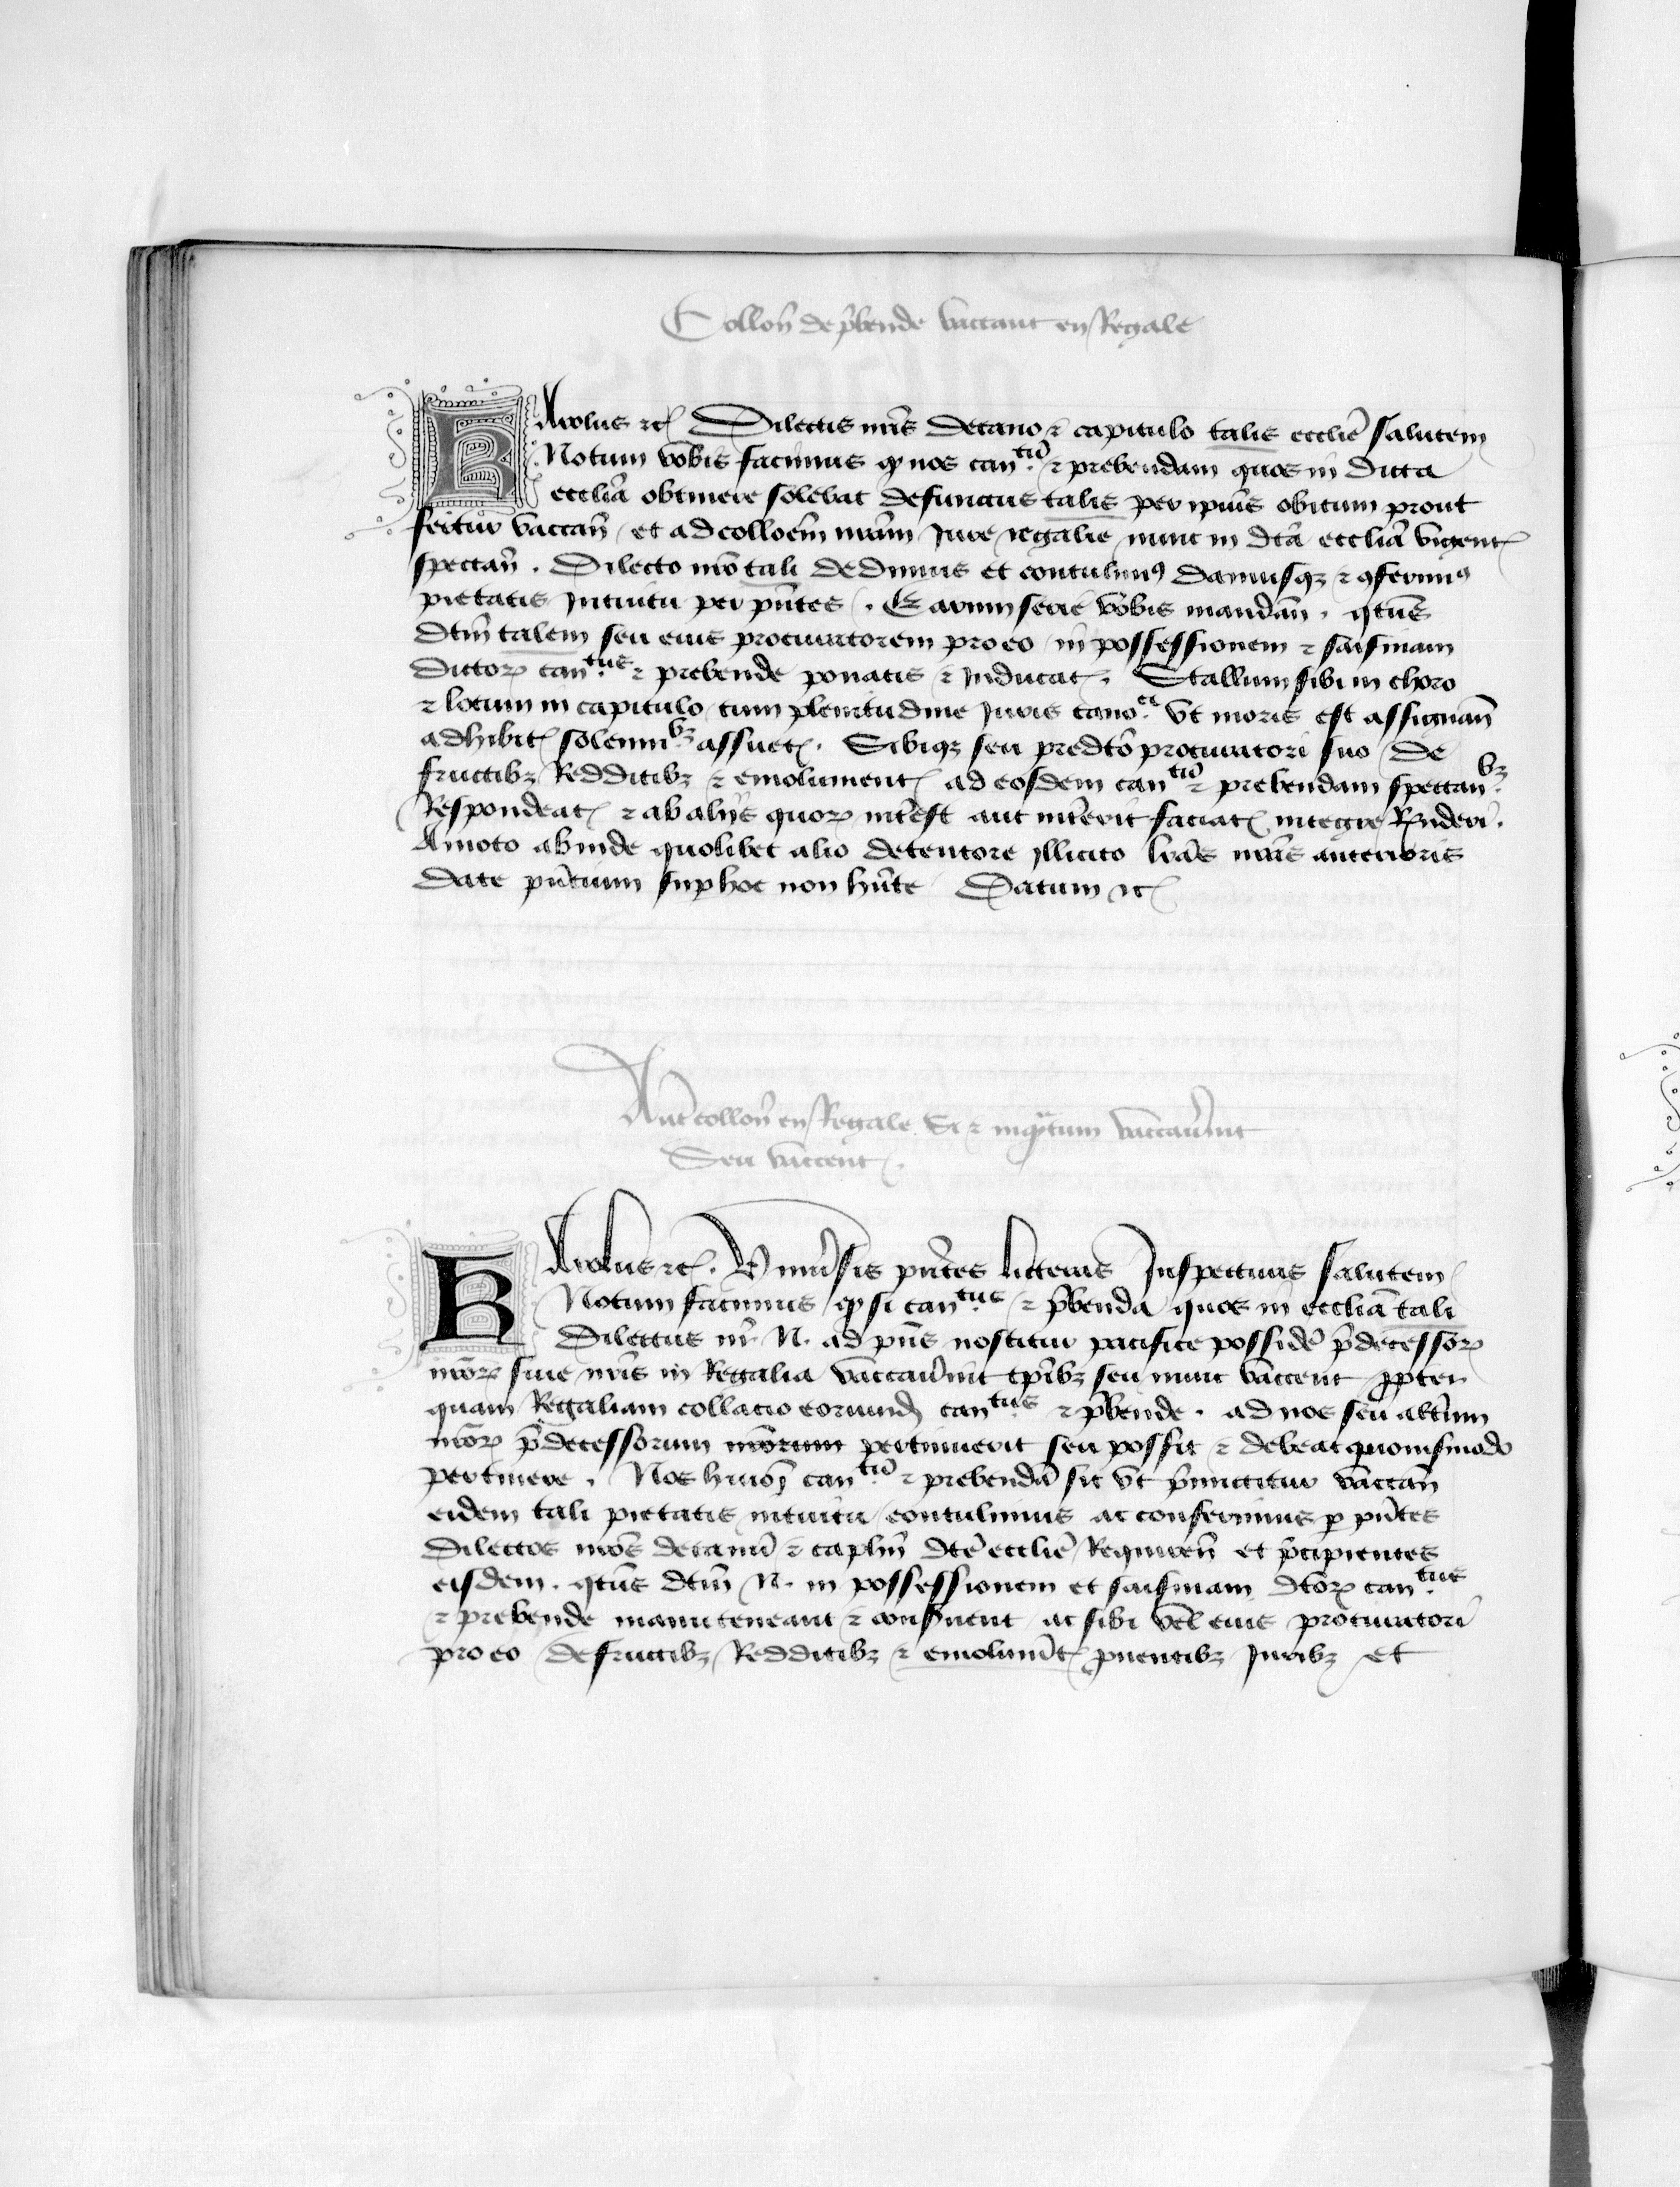 Collon̄ de p̄bende vaccant en Regale
KArolus ⁊c̃ Dilectis nr̄is decano ⁊ capitulo talis ecclīe salutem
Notum vobis facimus ꝙ nos canᵗū ⁊ prebendam quos in dicta
ecclīa obtinere solebat defunctus talis per ipius obitum prout
fertur vaccan̄ et ad colloēm nrām Jure regalie nunc in dtā ecclīa vigent̃
spectan̄ . Dilecto nrō tali dedimus et contulimꝰ damusqꝫ ⁊ ꝯferimꝰ
pietatis Jntuitu per pn̄tes . Earum serie vobis mandan̄ . qtūs
dtm̄ talem seu eius procuratorem pro eo in possessionem ⁊ saisinam
dictoꝝ canᵗᵘˢ ⁊ prebende ponatis ⁊ Jnducat̃ . Stallum sibi in choro
⁊ locum in capitulo cum plenitudine Juris cano.ᶜⁱ vt moris est assignan̄
adhibit̃ solenniᵇꝫ assuet̃ . Sibiqꝫ seu predtō procuratori suo de
fructibꝫ Redditibꝫ ⁊ emolument̃ ad eosdem canᵗū ⁊ prebendam spectanᵇꝫ
Respondeat̃ ⁊ ab alijs quoꝝ intēst aut intērit faciat̃ integre Rn̄deri .
Amoto abinde quolibet alio detentore illicito lrīs nrīs anterioris
date pn̄cium suꝑ hoc non hn̄te Datum ⁊c̃
Aut̄ collon̄ en Regale Si ⁊ inqn̄tum vaccaūint
Seu vaccent̃ .
KArolus ⁊c̃ . Vniūsis pn̄tes litteras Jnspecturis salutem
Notum facimus ꝙ si canᵗᵘˢ ⁊ p̄benda quos in ecclīa tali
Dilectus nr̄ N. ad pn̄s noscitur pacifice possidē p̄decessoꝝ
nrōꝝ siue nrīs in Regalia vaccaūint tp̄ibꝫ seu nunc vaccent ꝓpter
quam Regaliam collacio eorund̄ canᵗᵘˢ ⁊ p̄bende . ad nos seu altūm
nrōꝝ p̄decessorum nrōrum pertinuerit seu possit ⁊ debeat quomōdo
pertinere . Nos huiōi canᵗū ⁊ prebendā sic vt p̄mictitur vaccan̄
eidem tali pietatis intuitu contulimus ac conferimus ꝑ pn̄tes
Dilectos nrōs decanū ⁊ caplm̄ dtē ecclīe Requiren̄ et p̄cipientes
eisdem . qtūs dtm̄ N. in possessionem et saisinam dtōꝝ canᵗᵘˢ
⁊ prebende manuteneant ⁊ consūent ac sibi vel eius procuratori
pro eo de fructibꝫ Redditibꝫ ⁊ emolumt̄ ꝓuentibꝫ Juribꝫ et